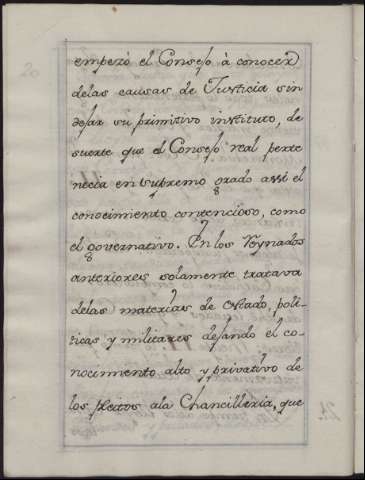 empezò el Consejo à conocer
delas causas de Justicia sin
dejar su primitivo instituto, de
suerte que el Consejo real perte
necia en supremo grado assi el
conocimiento contencioso, como
el governativo. En los Reynados
anteriores solamente tratava
delas materias de estado, poli-
ticas y militares dejando el co-
nocimiento alto y privativo de
los pleitos ala Chancilleria, que